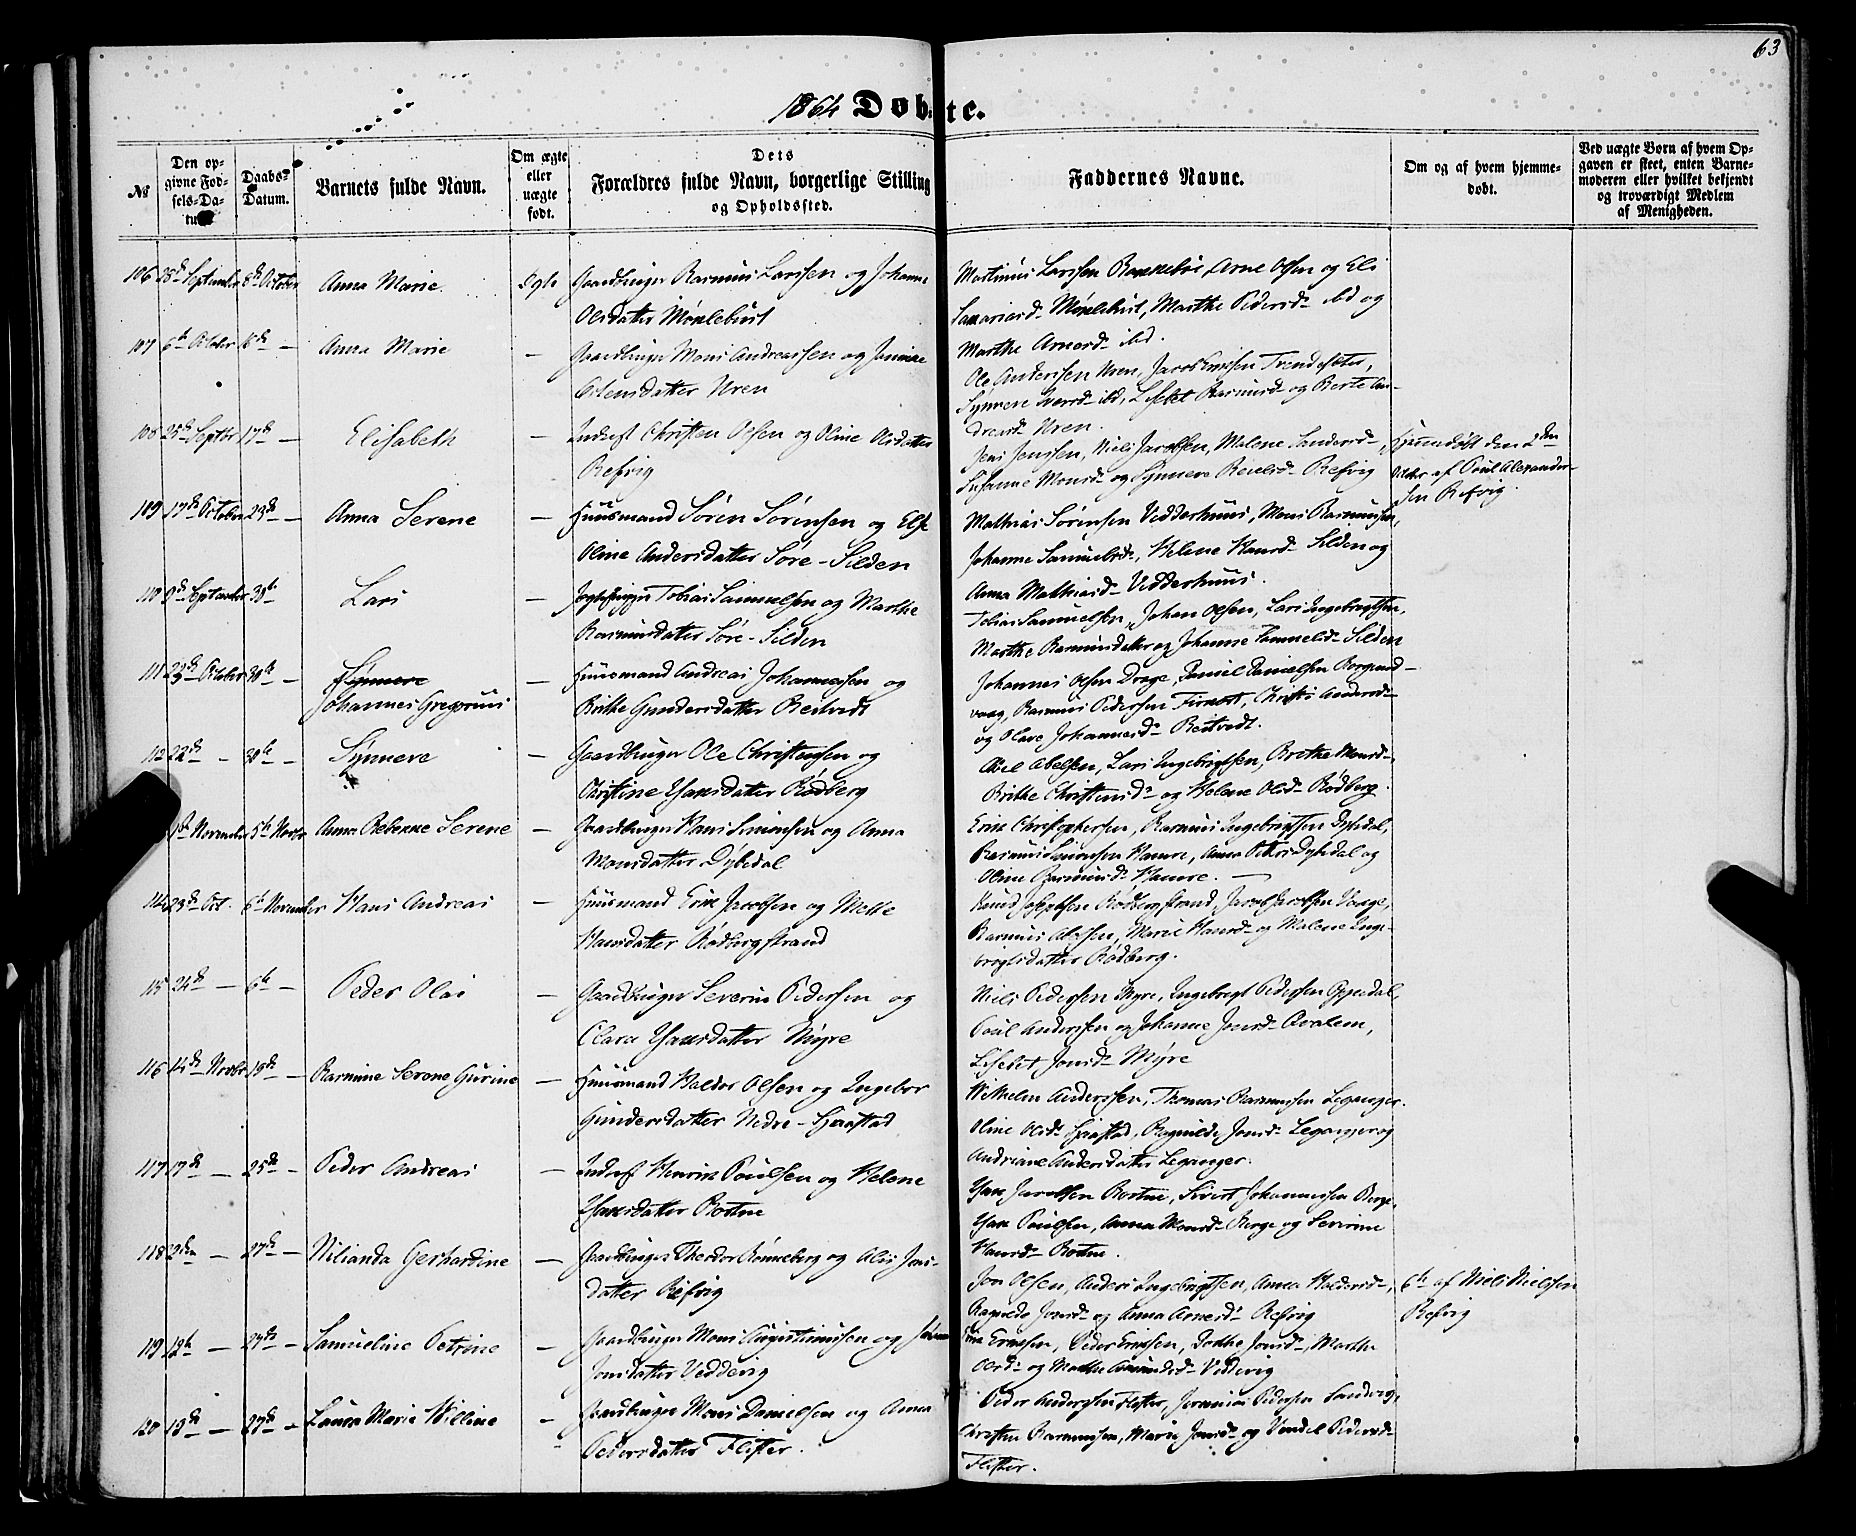 63
1864 Døbte.
№
Den op-
givne Fød-
sels-Da-
tum
Daabs-
Datum.
Barnets fulde Navn.
Om ægte
eller
uægte
født.
Dets
Forældres fulde Navn, borgerlige Stilling
og Opholdssted.
Faddernes Navne.
Om og af hvem hjemme-
døbt.
Ved uægte Børn af hvem Op-
gaven er skeet, enten Barne-
moderen eller hvilket bekjendt
og troværdigt Medlem
af Menigheden.
106 28de September 8de October Anna Marie Egte Gaardbruger Rasmus Larssen og Johanne
Olsdatter Møklebust
Martinus Larssen Arne Olsen og Eli
Møklebust, Marthe Pedersd. ibd og
Marthe Arnesd. ibd.
107 6te October Anna Marie — Gaardbruger Mons Andreassen og
Nren
Ole Anderssen Nren,
Synneve Iversd. ibd, Lisebet Rasmusd. og Berte An-
dreasd. Nren.
108 25de Septbr 17de — Elisabeth — Inderst Christen Olsen og Oline Olsdatter
Refvig
Jens Jenssen, Niels Jacobsen, Malene
Susanne Monsd. og Synneve Refvig
Hjemmedøbt den 2den
October af Poul Alexander-
sen Refvig.
109 17de October 23de — Anna Serene — Huusmand Søren Sørensen og Else
Oline Andersdatter Søre-Silden
Mathias Sørensen Vedderhuus, Mons Rasmussen,
Johanne Samuelsd., Helene Hansd. Silden og
Anna Mathiasd. Vedderhuus.
110 9de September 30te Lars — Tobias Samuelsen og Marthe
Rasmusdatter Søre-Silden
Tobias Samuelsen, Johan Olsen, Lars Ingebrigtsen,
Marthe Rasmusdatter og Johanne Samuelsd. Silden
111 23de October 30te — Synneve
Johannes Gregorius — Huusmand Andreas Johannessen og
Brithe Gundersdatter Reitvedt
Johannes Olsen Drage, Daniel Danielsen Borgund-
vaag, Rasmus Pedersen
og Olave Johannesd. Reitvedt.
112 22de — 30te — Synneve — Gaardbruger Ole Christensen og
Christine Hansdatter Rødberg
Abel Abelsen, Lars Ingebrigtsen, Brethe Monsd.,
Brithe Christensd. og Helene Olsd. Rødberg.
November 5te Novbr Anna Rebekke Serene — Gaardbruger Hans Simonsen og Anna
Monsdatter Dybedal
Erik Christophersen, Rasmus Ingebrigtsen Dybedal,
Rasmus Simonsen Hamre, Anna Dybedal og
Oline Rasmusd. Hamre.
114 23de Oct. 6te November Hans Andreas — Huusmand Erik Jacobsen og Mette
Hansdatter Rødbergstrand
Knud Josephsen Rødbergstrand, Jacob Jacobsen Vaage,
Rasmus Abelsen, Marie Hansd. og Malene Inge-
brigtsdatter Rødberg.
115 24de — 6te — Peder Olai — Gaardbruger Severin Pedersen og
Clara Hansdatter Myre
Niels Pedersen Myre, Ingebrigt Pedersen
Poul Anderssen og Johanne Jonsd.
Lisebet Jonsd. Myre
116 14de Novbr 19de — Rasmine Serene Gurine — Huusmand Halder Olsen og Ingebor
Gundersdatter Nedre-Hjaastad
Wilhelm Anderssen, Thomas Rasmussen Leganger.
Oline Olsd. Hjaastad, Ragnilde Jonsd. Leganger og
Andriane Andersdatter Leganger.
117 17de — 25de — Peder Andreas — Inderst Henrik Poulsen og Helene
Hansdatter Rostue
Jacobsen Rostue, Sivert Johannessen Berge,
Poulsen, Anna Monsd. Berge og Severine
Hansd. Rostue.
118 2den — 27de — Nilianda Gerhardine — Gaardbruger Theodor Rønneberg og Alis Jons-
datter Refvig
Jon Olsen, Anders Ingebrigtsen, Anna Haldersd.,
Jonsd. og Anna Arnesd. Refvig
6te af Niels Nielssen
Refvig
119 12te — 27de — Samueline Petrine — Gaardbruger Mons Augustinussen og
Jonsdatter Vedvig
Erikssen, Peder Erikssen, Dorthe Jonsd., Marthe
Olsd. og Marthe Vedvig
120 19de — 27de — Laura Marie Williue — Gaardbruger Mons Danielsen og Anna
Pedersdatter Flister.
Peder Anderssen Flister, Jeremias Pedersen Sandvig,
Christen Rasmussen, Marie Jonsd. og Vendel Pedersd.
Flister.